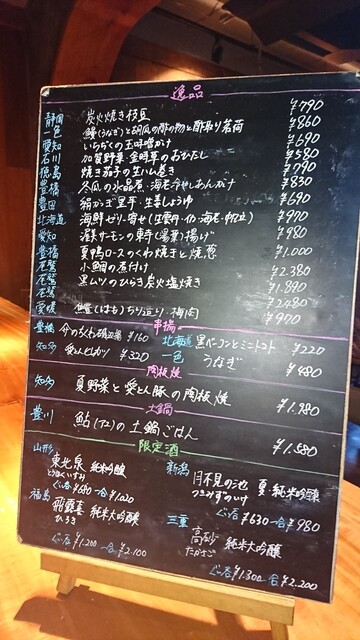 逸品
静岡 炭火焼き枝豆 ¥790
一色 鰻(うなぎ)と胡瓜の酢の物と酢取り茗荷 ¥860
愛知 いちぢくの玉味噌がけ ¥690
石川 加賀野菜・金時草のおひたし ¥580
徳島 焼き茄子の生ハム巻き ¥790
豊橋 冬瓜の水晶煮・海老冷やしあんかけ ¥830
豊田 絹かぎ里芋・生姜しょうゆ ¥690
北海道 海鮮ゼリー寄せ ¥970
愛知 サーモンの東寺(湯葉)揚げ ¥980
豊橋 夏鴨ロースのくわ焼きと焼葱 ¥1,000
小鯛の煮付け ¥2,380
黒ムツのひらき炭火塩焼き ¥1,890
¥2,480
愛媛 鱧(はも)ちり造り 梅肉 ¥970
串揚
豊橋 ¥160
北海道 黒ベーコンとミニトマト ¥220
知多 愛とんヒレカツ ¥320
一色 うなぎ ¥480
肉板焼
知多 夏野菜と愛とん豚の肉板焼 ¥1,980
土鍋
豊川 鮎(アユ)の土鍋ごはん ¥1,580
限定酒
山形 東光泉 純米吟醸
ぐい呑 ¥680 一合 ¥1,020
新潟 月不見の池 夏・純米吟醸
つきみずのいけ
ぐい呑 ¥630 一合 ¥980
福島 飛露喜 純米大吟醸
ひろき
ぐい呑 ¥1,200 一合 ¥2,100
三重 高砂 純米大吟醸
たかさご
ぐい呑 ¥1,300 一合 ¥2,200